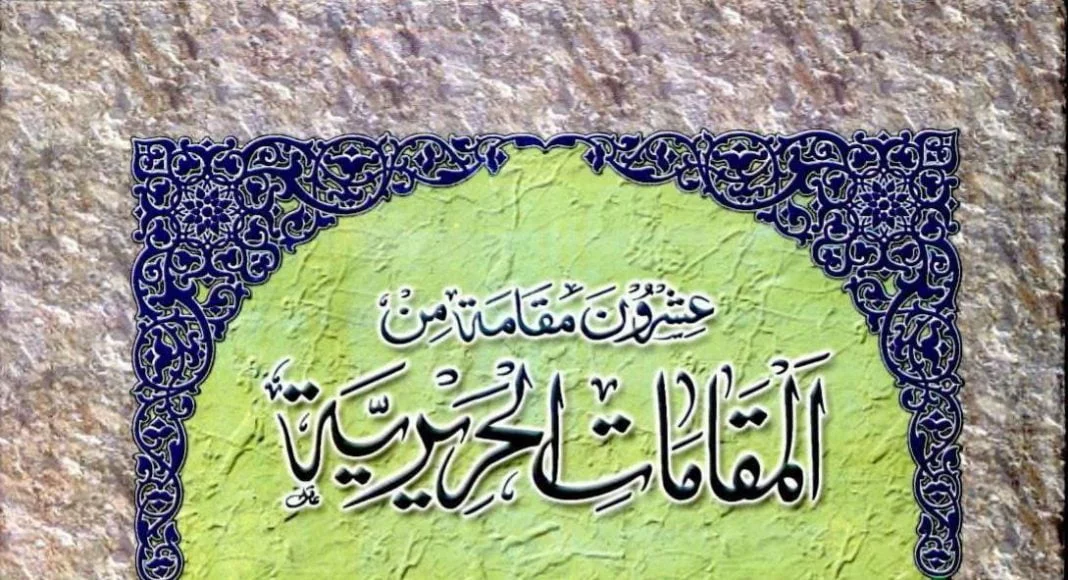 عِشْرُوْنَ مَقَامَة مِنْ
اَلْمَقَامَاتِ الْحَرِيْرِيَّةِ